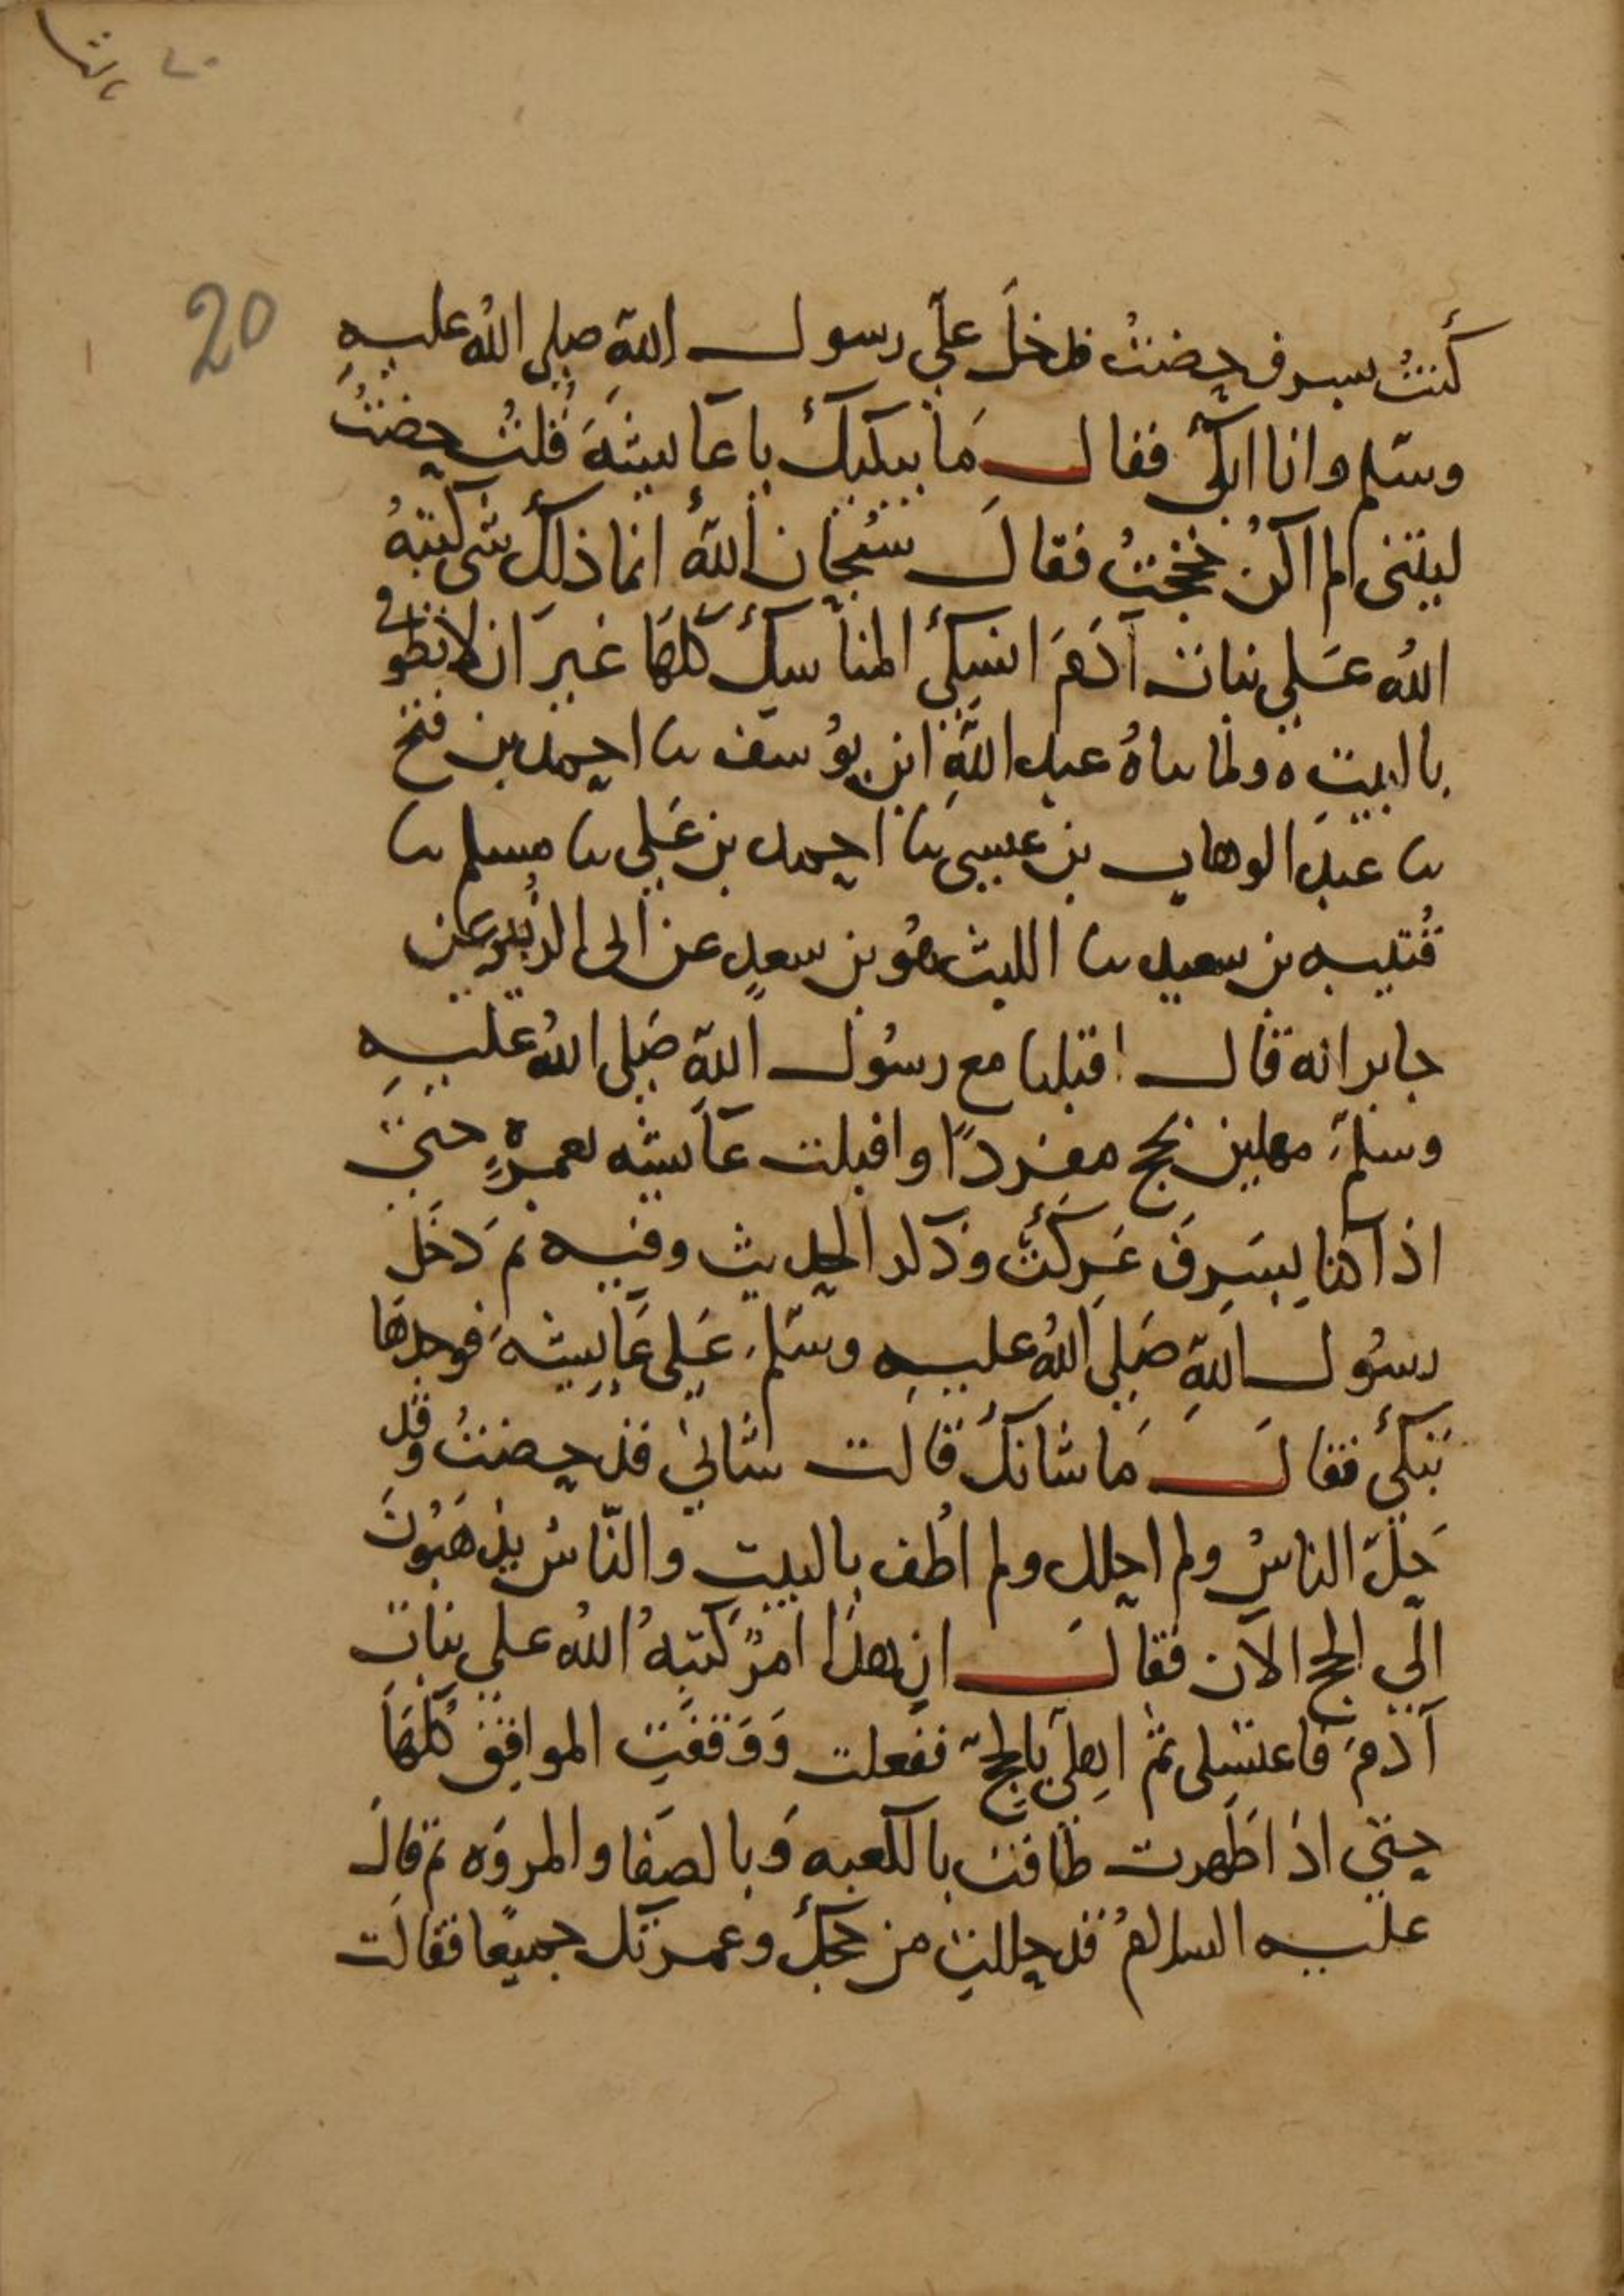 20
كنتُ بسرف حِضتُ فدخلَ علَّي رسول اللهِ صلى اللهُ عليهِ
وسلم وانا ابكى فقال مَا يبكيكِ يا عَايشَةَ قُلتُ حِضتُ
ليتنى لم اكنْ حججتُ فقال سُبْحان اللهُ انما ذلك شى كتبَهُ
اللهُ عَلى بنات آدَمَ انسكى المناسكَ كلهَا غيرَ ان لا تطوفى
بالبيتِ ه ولما ناهُ عبد اللهِ ابن يُوسف نا احمد بن فتح
نا عبدُ الوهاب بن عيسى نا احمد بن عَلى نا مسلم نا
قُتيبه بن سعيد نا الليث هُو بن سعدٍ عن ابى الزُبير عن
جابر انه قال اقبلنا مع رسُول اللهِ صَلى اللهُ عليهِ
وسلمَ مهلين بحج مفردًا واقبلت عَايشه بعمرةٍ حتى
اذا كنا بِسَرِفَ عَرَكَتْ وذكر الحديث وفيه ثم دَخَل
رسُول اللهِ صَلى اللهُ عليه وسلم عَلى عَايشَةَ فوجدهَا
تبكى فقالَ مَا شانكِ قالت شانى قد حضتُ وقد
حَلّ الناسُ ولم احلل ولم اطُف بالبيتِ والنّاسُ يذهَبُونَ
الى الحج الآن فقالَ ان هذا امرٌ كتبهُ اللهُ على بناتِ
آدمَ فاغتسلى ثم اهِلّى بالحجّ ففعلت وَوَقَفَتِ المواقِفَ كُلّهَا
حتى اذا طَهرت طَافت بالكعبه وَبالصَفا والمروَه ثم قال
عليه السلامُ قد حللتِ من حجكِ وعمرتك جميعًا فقالت